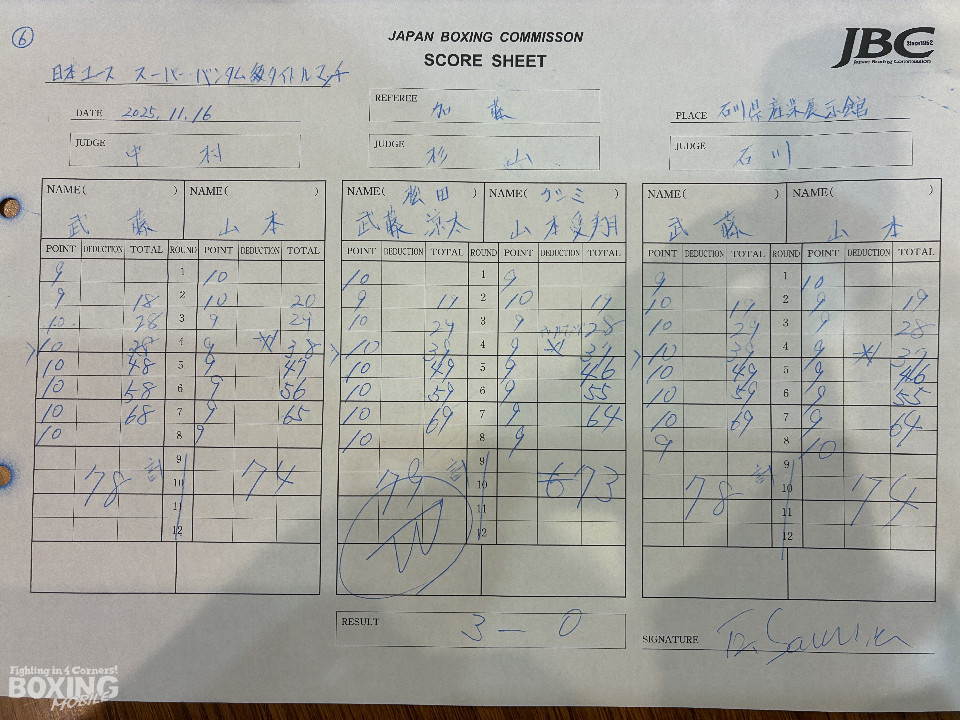 ⑥
JAPAN BOXING COMMISSON
SCORE SHEET
JBC
Since1952
Japan Boxing Commission
日本ユース スーパーバンタム級タイトルマッチ
DATE 2025.11.16
REFEREE 加藤
PLACE 石川県産業展示館
JUDGE 中村
JUDGE 杉山
JUDGE 石川
NAME( ) NAME( ) NAME( 松田 ) NAME( クシミ ) NAME( ) NAME( )
武藤 山本 武藤涼太 山本愛翔 武藤 山本
POINT DEDUCTION TOTAL ROUND POINT DEDUCTION TOTAL POINT DEDUCTION TOTAL ROUND POINT DEDUCTION TOTAL POINT DEDUCTION TOTAL ROUND POINT DEDUCTION TOTAL
9 1 10 10 1 9 9 1 10
9 18 2 10 20 9 19 2 10 19 10 19 2 9 19
10 28 3 9 29 10 29 3 9 28 10 29 3 9 28
10 38 4 9 38 10 39 4 9 37 10 39 4 9 37
10 48 5 9 47 10 49 5 9 46 10 49 5 9 46
10 58 6 9 56 10 59 6 9 55 10 59 6 9 55
10 68 7 9 65 10 69 7 9 64 10 69 7 9 64
10 8 9 10 8 9 9 8 10
9 9 9
78 計 10 74 79 計 10 73 78 計 10 74
11 W 11 11
12 12 12
RESULT 3 — 0
SIGNATURE
Fighting in 4 Corners!
BOXING
MOBILE